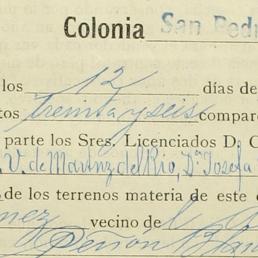 Colonia San Pedr
los 12 días de
tos treinta y seis compare
parte los Sres. Licenciados D. C
V. de Martnz del Rio, Da Josefa
de los terrenos materia de este c
nez vecino de l
Peñón Blan